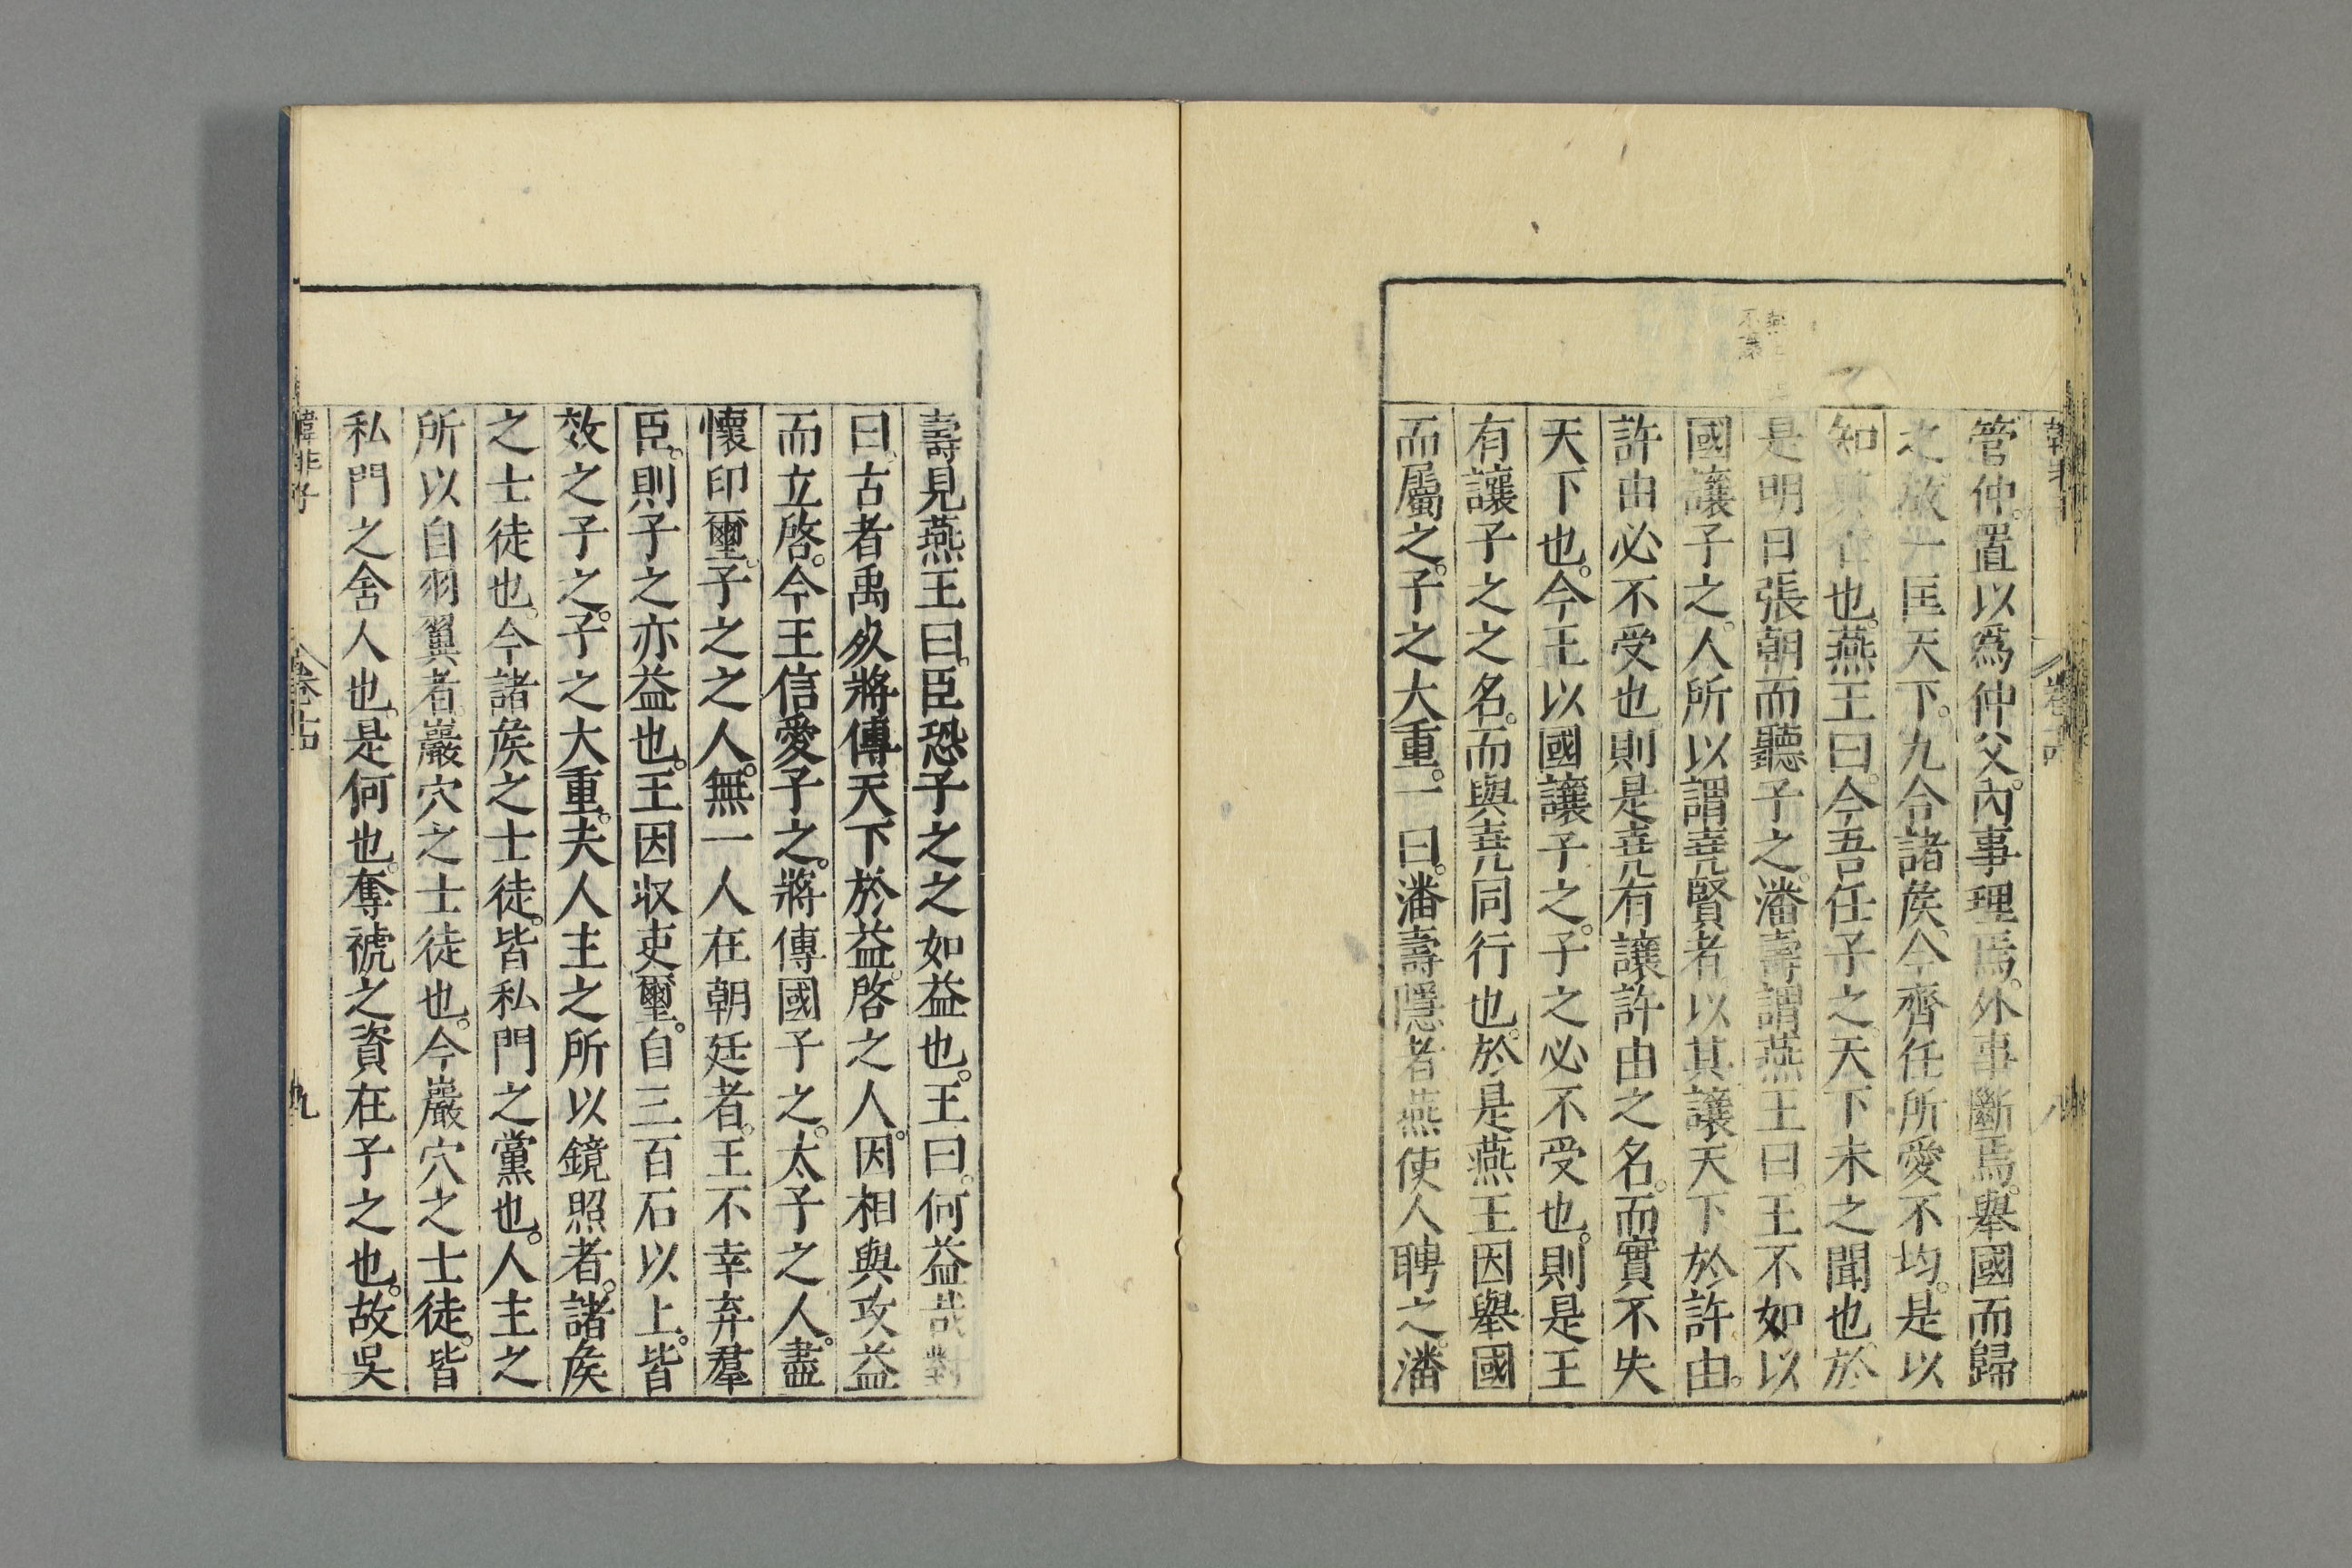 管仲。置以爲仲父。內事理焉。外事斷焉。舉國而歸
之。故一匡天下。九合諸矦。今齊任所愛不均。是以
知其在也。燕王曰。今吾任子之。天下未之聞也。於
是明日張朝而聽子之。潘壽謂燕王曰。王不如以
國讓子之。人所以謂堯賢者。以其讓天下於許由。
許由必不受也則是堯有讓許由之名。而實不失
天下也。今王以國讓子之。子之必不受也。則是王
有讓子之之名。而與堯同行也。於是燕王因舉國
而屬之。子之大重。一曰。潘壽隱者燕使人聘之。潘
壽見燕王曰。臣恐子之之如益也。王曰。何益哉對
曰。古者禹外將傳天下於益。啓之人。因相與攻益
而立啓。今王信愛子之。將傳國子之。太子之人。盡
懷印壐。子之之人。無一人在朝廷者。王不幸弃羣
臣。則子之亦益也。王因收吏壐。自三百石以上。皆
效之子之。子之大重。夫人主之所以鏡照者。諸矦
之士徒也。今諸矦之士徒。皆私門之黨也。人主之
所以自羽翼者。巖穴之士徒也。今巖穴之士徒。皆
私門之舍人也。是何也。奪褫之資在子之也。故吳
韓非子 卷十四 九